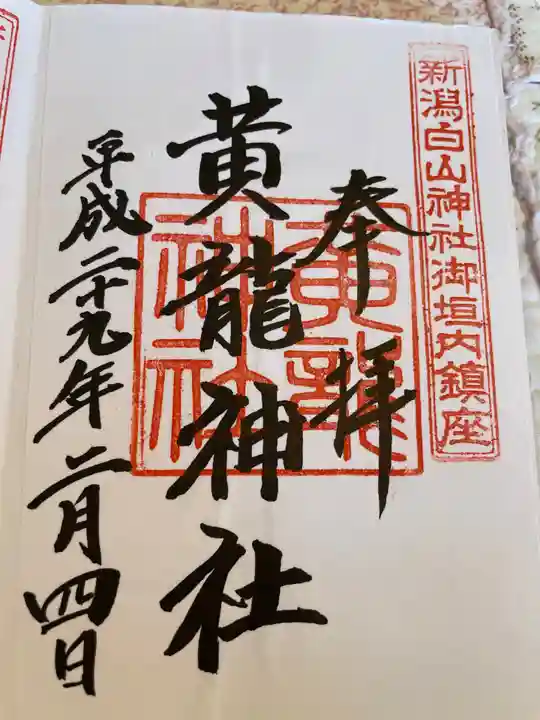 新潟白山神社御垣内鎮座
奉拝
黄龍神社
黄龍
神社
平成二十九年二月四日